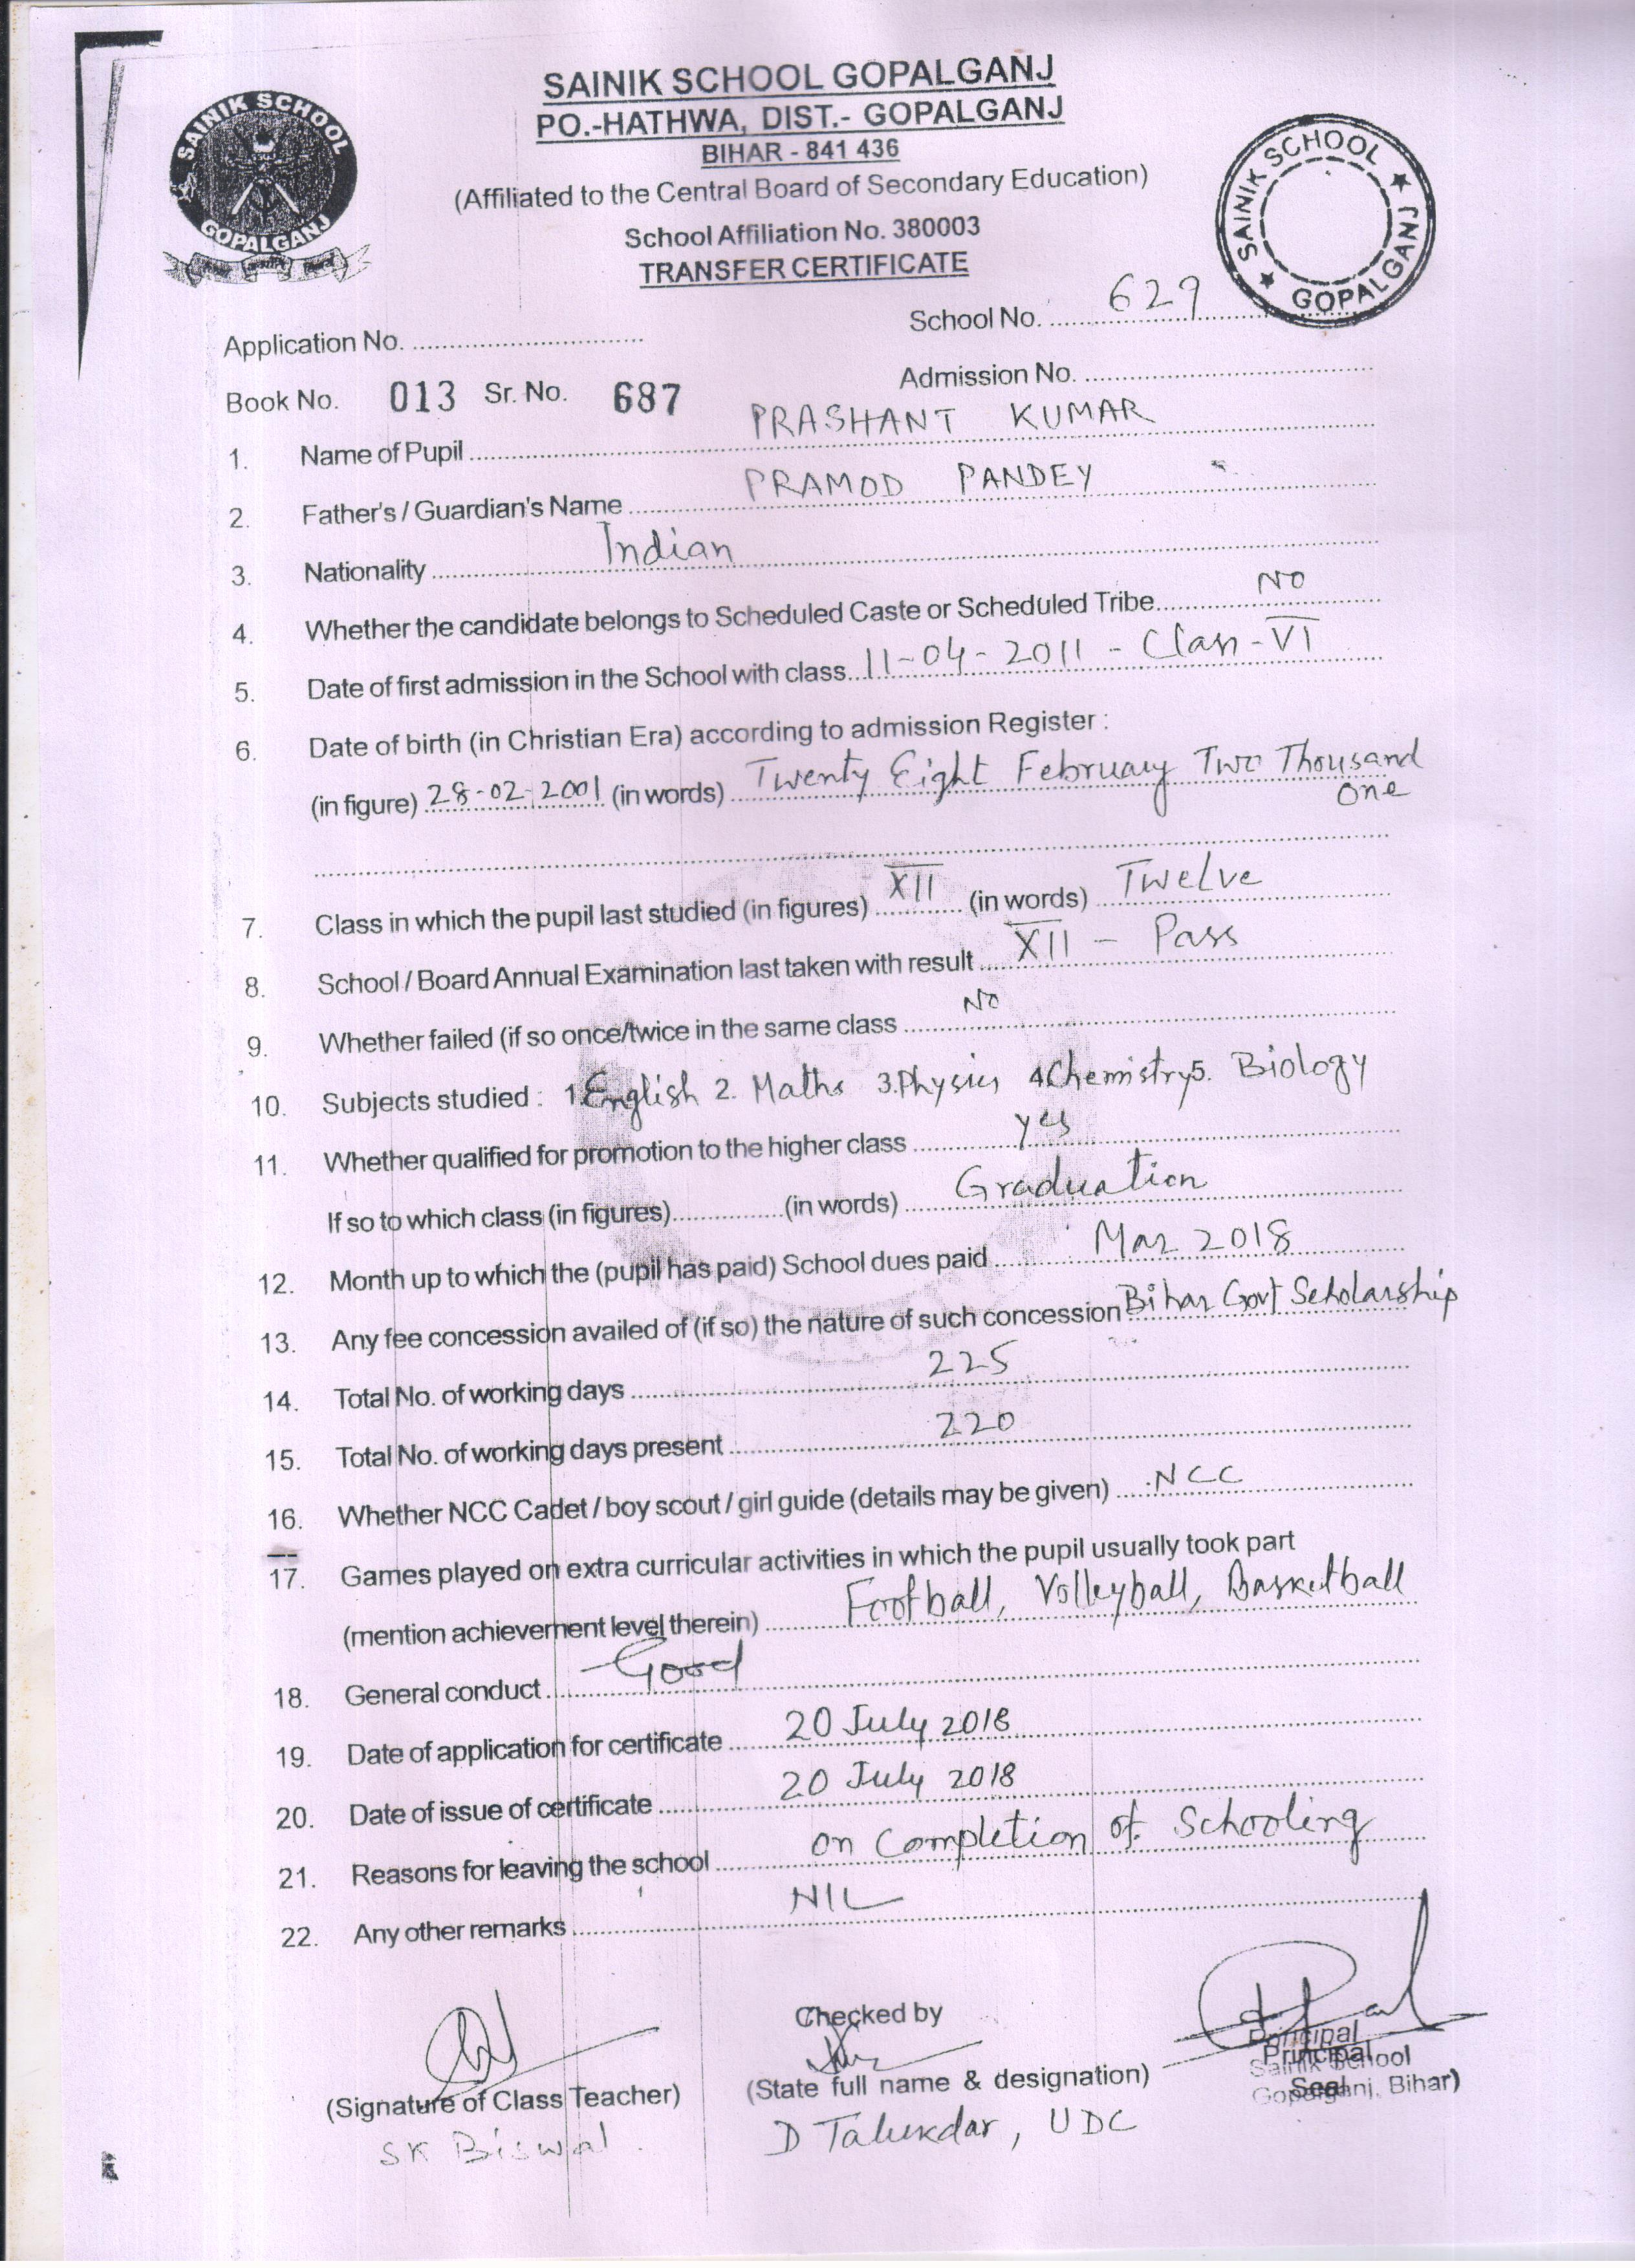 SAINIK SCHOOL GOPALGANJ
PO.-HATHWA, DIST.- GOPALGANJ
BIHAR - 841 436
(Affiliated to the Central Board of Secondary Education)
School Affiliation No. 380003
TRANSFER CERTIFICATE
SAINIK SCHOOL
GOPALGANJ
SAINIK SCHOOL
GOPALGANJ
School No. 629
Application No.
Admission No.
Book No. 013 Sr. No. 687
1. Name of Pupil PRASHANT KUMAR
2. Father's / Guardian's Name PRAMOD PANDEY
3. Nationality Indian
4. Whether the candidate belongs to Scheduled Caste or Scheduled Tribe NO
5. Date of first admission in the School with class 11-04-2011 - Class-VI
6. Date of birth (in Christian Era) according to admission Register :
(in figure) 28-02-2001 (in words) Twenty Eight February Two Thousand
One
7. Class in which the pupil last studied (in figures) XII (in words) Twelve
8. School / Board Annual Examination last taken with result XII - Pass
9. Whether failed (if so once/twice in the same class No
10. Subjects studied : 1. English 2. Maths 3. Physics 4. Chemistry 5. Biology
11. Whether qualified for promotion to the higher class yes
If so to which class (in figures) (in words) Graduation
12. Month up to which the (pupil has paid) School dues paid Mar 2018
13. Any fee concession availed of (if so) the nature of such concession Bihar Govt Scholarship
14. Total No. of working days 225
15. Total No. of working days present 220
16. Whether NCC Cadet / boy scout / girl guide (details may be given) NCC
17. Games played on extra curricular activities in which the pupil usually took part
(mention achievement level therein) Football, Volleyball, Basketball
18. General conduct Good
19. Date of application for certificate 20 July 2018
20. Date of issue of certificate 20 July 2018
21. Reasons for leaving the school on Completion of Schooling
22. Any other remarks NIL
Checked by
(Signature of Class Teacher) (State full name & designation)
SK Biswal D Talukdar, UDC
Principal
Principal
Sainik School
Seal
Gopalganj, Bihar)